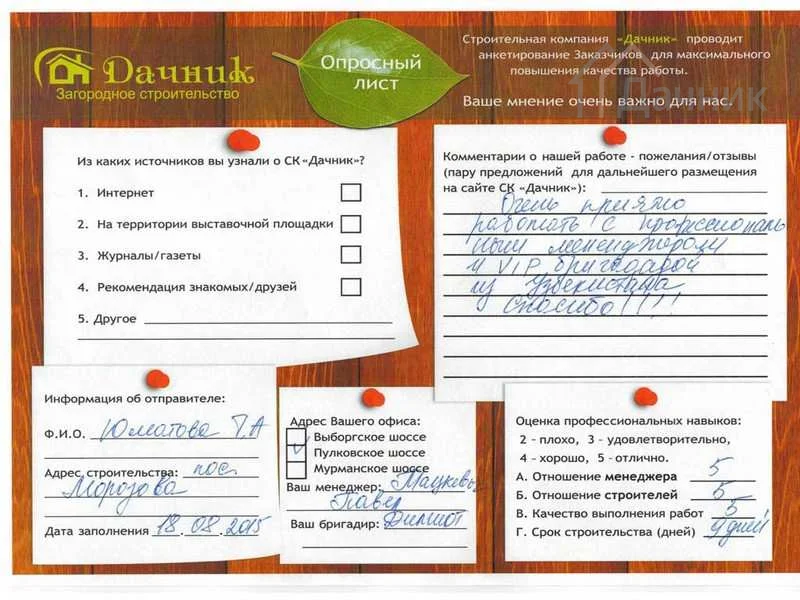 Дачник
Загородное строительство
Опросный
лист
Строительная компания «Дачник» проводит
анкетирование Заказчиков для максимального
повышения качества работы.
Ваше мнение очень важно для нас.
Дачник
Из каких источников вы узнали о СК «Дачник»?
1. Интернет
2. На территории выставочной площадки
3. Журналы/газеты
4. Рекомендация знакомых/друзей
5. Другое
Комментарии о нашей работе - пожелания/отзывы
(пару предложений для дальнейшего размещения
на сайте СК «Дачник»):
Очень приятно
работать с профессиональ
ными менеджерами
и VIP бригадой
из Узбекистана
Спасибо!!!!
Информация об отправителе:
Ф.И.О. Юматова Т.А
Адрес строительства: пос.
Морозова
Дата заполнения 18.08.2015
Адрес Вашего офиса:
Выборгское шоссе
Пулковское шоссе
Мурманское шоссе
Ваш менеджер:
Павел
Ваш бригадир: Дилшот
Оценка профессиональных навыков:
2 - плохо, 3 - удовлетворительно,
4 - хорошо, 5 - отлично.
А. Отношение менеджера 5
Б. Отношение строителей 5
В. Качество выполнения работ 5
Г. Срок строительства (дней) 9 дней